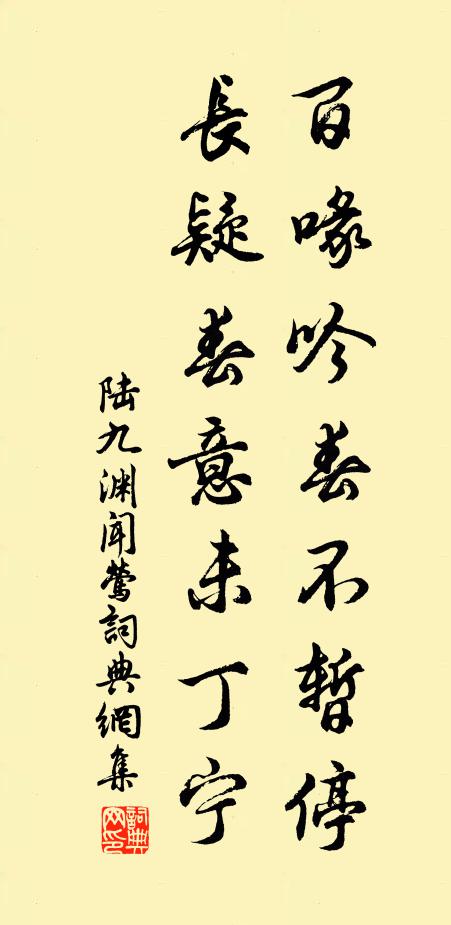 百喙吟春不暫停
長疑春意未丁宁
陆九渊闻莺詞典網集
詞典网印